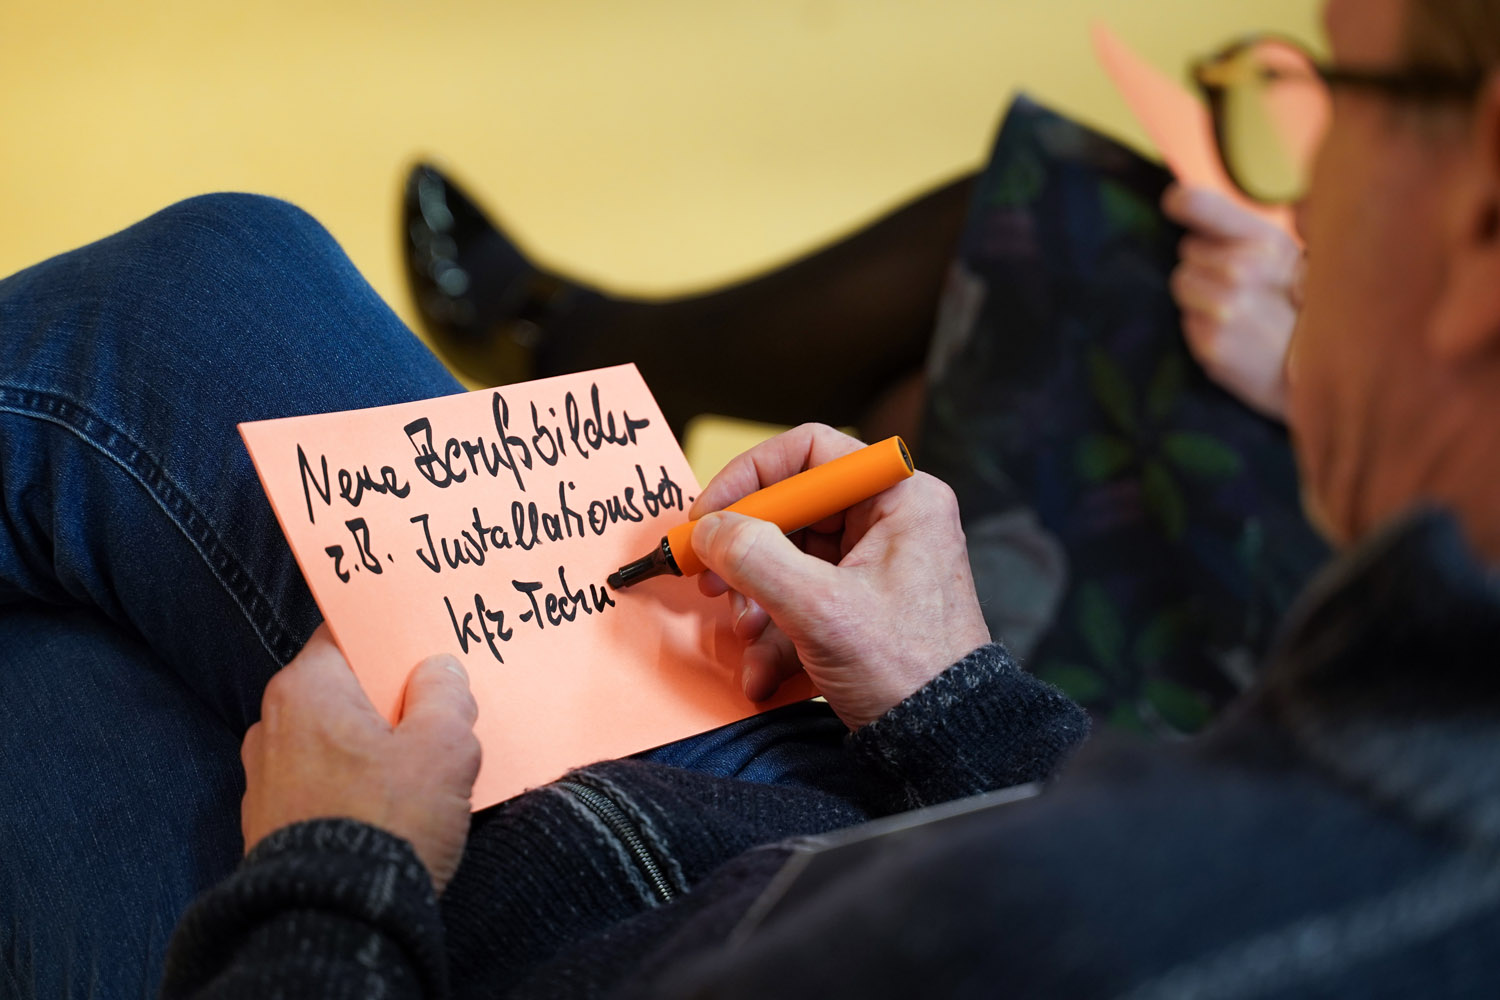 Neue Berufsbilder
z.B. Installationsbetr.
kfz-Techn